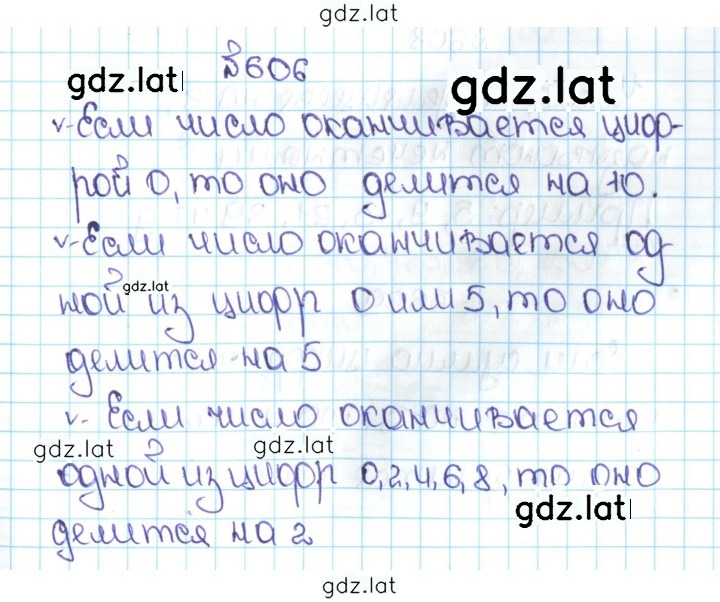 gdz.lat
№606
gdz.lat gdz.lat
v-Если число оканчивается циф-
рой 0, то оно делится на 10.
v-Если число оканчивается од-
gdz.lat
ной из цифр 0 или 5, то оно
делится на 5
v- Если число оканчивается
gdz.lat gdz.lat
одной из цифр 0,2,4,6,8, то оно
gdz.lat
делится на 2
gdz.lat